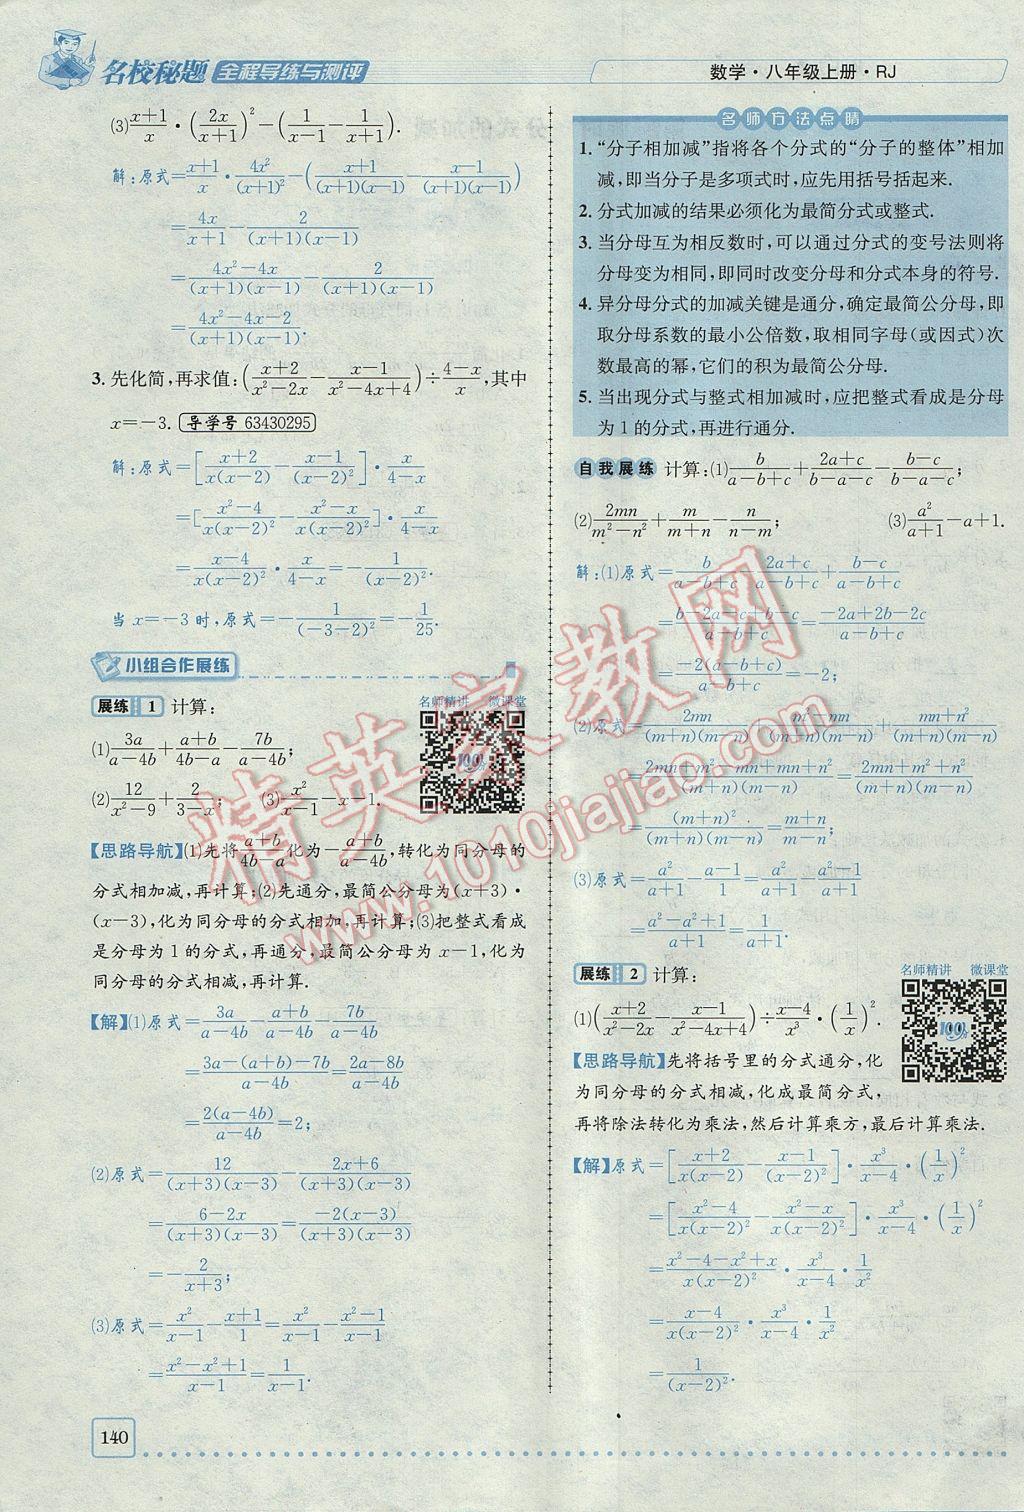 名校秘题 全程导练与测评
数学·八年级上册·RJ
(3) \frac{x+1}{x}·(\frac{2x}{x+1})²-(\frac{1}{x-1}-\frac{1}{x+1}).
解:原式=\frac{x+1}{x}·\frac{4x²}{(x+1)²}-(\frac{x+1}{(x+1)(x-1)}-\frac{x-1}{(x+1)(x-1)})
=\frac{4x}{x+1}-\frac{2}{(x+1)(x-1)}
=\frac{4x²-4x}{(x+1)(x-1)}-\frac{2}{(x+1)(x-1)}
=\frac{4x²-4x-2}{(x+1)(x-1)}.
3. 先化简,再求值:(\frac{x+2}{x²-2x}-\frac{x-1}{x²-4x+4})÷\frac{4-x}{x},其中
x=-3. 导学号 63430295
解:原式=[\frac{x+2}{x(x-2)}-\frac{x-1}{(x-2)²}]·\frac{x}{4-x}
=[\frac{x²-4}{x(x-2)²}-\frac{x²-x}{x(x-2)²}]·\frac{x}{4-x}
=\frac{x-4}{x(x-2)²}·\frac{x}{4-x}=-\frac{1}{(x-2)²}.
当 x=-3 时,原式=-\frac{1}{(-3-2)²}=-\frac{1}{25}.
小组合作展练
展练 1 计算:
名师精讲 微课堂
(1) \frac{3a}{a-4b}+\frac{a+b}{4b-a}-\frac{7b}{a-4b};
(2) \frac{12}{x²-9}+\frac{2}{3-x}; (3) \frac{x²}{x-1}-x-1.
【思路导航】(1)先将\frac{a+b}{4b-a}化为-\frac{a+b}{a-4b},转化为同分母的
分式相加减,再计算;(2)先通分,最简公分母为(x+3)·
(x-3),化为同分母的分式相加,再计算;(3)把整式看成
是分母为1的分式,再通分,最简公分母为 x-1,化为
同分母的分式相减,再计算.
【解】(1)原式=\frac{3a}{a-4b}-\frac{a+b}{a-4b}-\frac{7b}{a-4b}
=\frac{3a-(a+b)-7b}{a-4b}=\frac{2a-8b}{a-4b}
=\frac{2(a-4b)}{a-4b}=2;
(2)原式=\frac{12}{(x+3)(x-3)}-\frac{2x+6}{(x+3)(x-3)}
=\frac{6-2x}{(x+3)(x-3)}=\frac{-2(x-3)}{(x+3)(x-3)}
=-\frac{2}{x+3};
(3)原式=\frac{x²}{x-1}-\frac{x+1}{1}=\frac{x²}{x-1}-\frac{x²-1}{x-1}
=\frac{x²-x²+1}{x-1}=\frac{1}{x-1}.
140
名师方法点睛
1. “分子相加减”指将各个分式的“分子的整体”相加
减,即当分子是多项式时,应先用括号括起来.
2. 分式加减的结果必须化为最简分式或整式.
3. 当分母互为相反数时,可以通过分式的变号法则将
分母变为相同,即同时改变分母和分式本身的符号.
4. 异分母分式的加减关键是通分,确定最简公分母,即
取分母系数的最小公倍数,取相同字母(或因式)次
数最高的幂,它们的积为最简公分母.
5. 当出现分式与整式相加减时,应把整式看成是分母
为1的分式,再进行通分.
自我展练 计算:(1) \frac{b}{a-b+c}+\frac{2a+c}{b-a-c}-\frac{b-c}{b-c-a};
(2) \frac{2mn}{m²-n²}+\frac{m}{m+n}-\frac{n}{n-m}; (3) \frac{a²}{a+1}-a+1.
解:(1)原式=\frac{b}{a-b+c}-\frac{2a+c}{a-b+c}+\frac{b-c}{a-b+c}
=\frac{b-2a-c+b-c}{a-b+c}=\frac{-2a+2b-2c}{a-b+c}
=\frac{-2(a-b+c)}{a-b+c}=-2;
(2)原式=\frac{2mn}{(m+n)(m-n)}+\frac{m²-mn}{(m+n)(m-n)}+\frac{mn+n²}{(m+n)(m-n)}
=\frac{2mn+m²-mn+mn+n²}{(m+n)(m-n)}=\frac{2mn+m²+n²}{(m+n)(m-n)}
=\frac{(m+n)²}{(m+n)(m-n)}=\frac{m+n}{m-n};
(3)原式=\frac{a²}{a+1}-\frac{a-1}{1}=\frac{a²}{a+1}-\frac{a²-1}{a+1}
=\frac{a²-a²+1}{a+1}=\frac{1}{a+1}.
展练 2 计算:
名师精讲 微课堂
(1)(\frac{x+2}{x²-2x}-\frac{x-1}{x²-4x+4})÷\frac{x-4}{x³}·(\frac{1}{x})².
【思路导航】先将括号里的分式通分,化
为同分母的分式相减,化成最简分式,
再将除法转化为乘法,然后计算乘方,最后计算乘法.
【解】原式=[\frac{x+2}{x(x-2)}-\frac{x-1}{(x-2)²}]·\frac{x³}{x-4}·(\frac{1}{x})²
=[\frac{x²-4}{x(x-2)²}-\frac{x²-x}{x(x-2)²}]·\frac{x³}{x-4}·(\frac{1}{x})²
=\frac{x²-4-x²+x}{x(x-2)²}·\frac{x³}{x-4}·\frac{1}{x²}
=\frac{x-4}{x(x-2)²}·\frac{x³}{x-4}·\frac{1}{x²}
=\frac{1}{(x-2)²}.
精英家教网
www.1010jiajiao.com